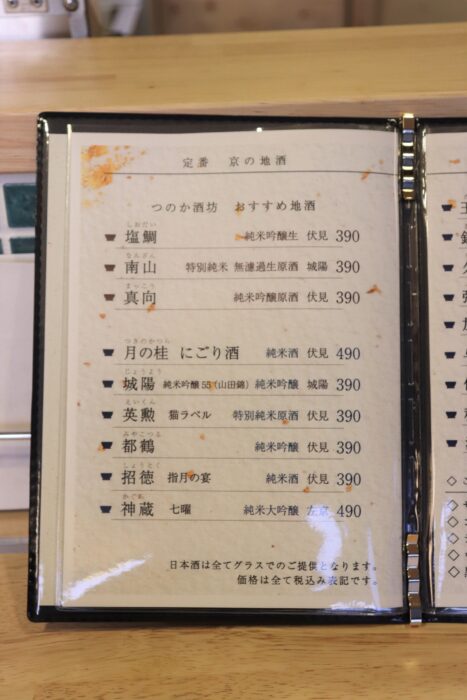 定番 京の地酒
つのか酒坊 おすすめ地酒
しおだい
塩鯛 純米吟醸生 伏見 390
なんざん
南山 特別純米 無濾過生原酒 城陽 390
まっこう
真向 純米吟醸原酒 伏見 390
つきのかつら
月の桂 にごり酒 純米酒 伏見 490
じょうよう
城陽 純米吟醸55(山田錦) 純米吟醸 城陽 390
えいくん
英勲 猫ラベル 特別純米原酒 伏見 390
みやこつる
都鶴 純米吟醸 伏見 390
しょうとく
招徳 指月の宴 純米酒 伏見 390
かぐら
神蔵 七曜 純米大吟醸 左京 490
日本酒は全てグラスでのご提供となります。
価格は全て税込み表記です。